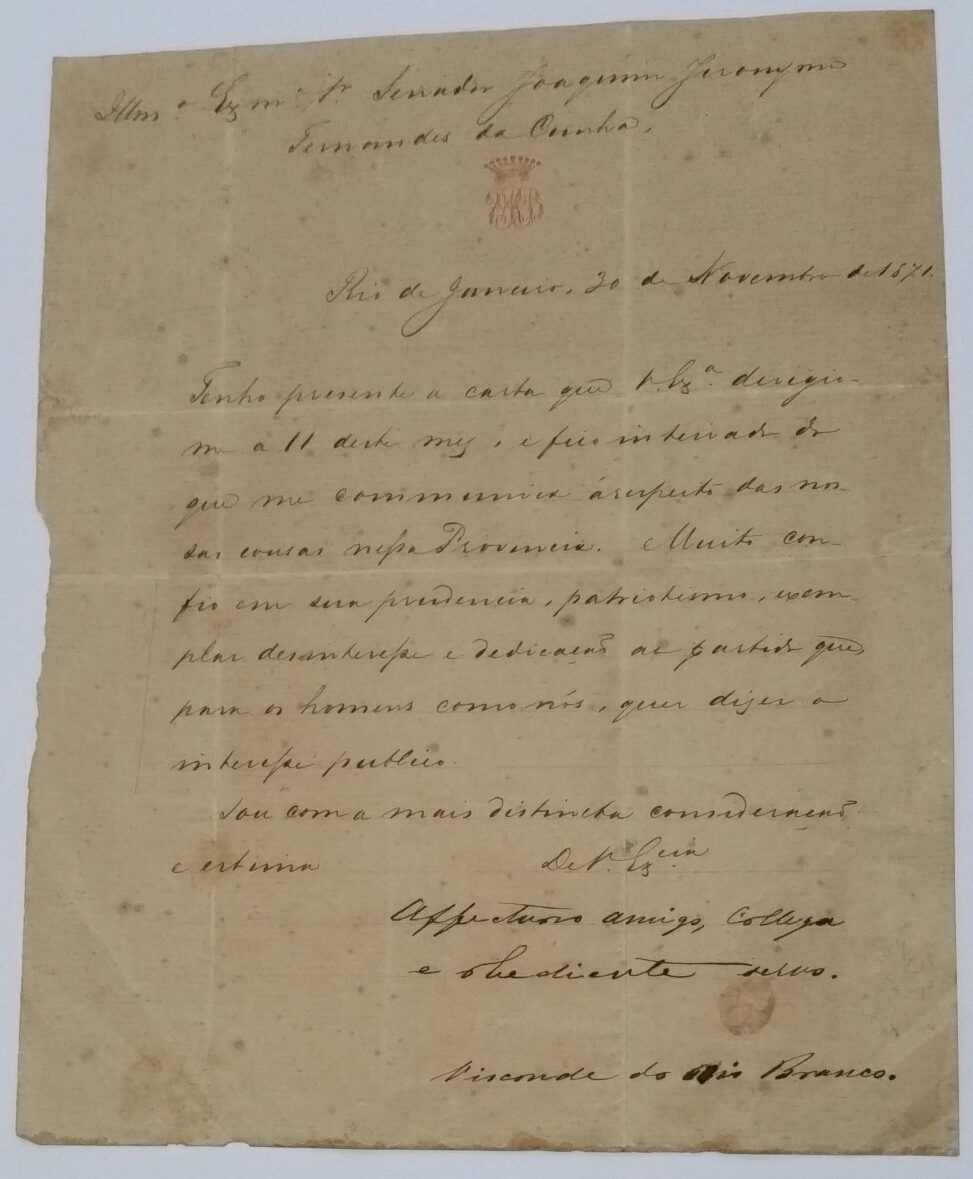 Illm.º Exm.º Sr. Senador Joaquim Jeronymo
Fernandes da Cunha.
VRB
Rio de Janeiro, 30 de Novembro de 1871.
Tenho presente a carta que V. Exª. derigio-
me a 11 deste mez, e fico inteirado do
que me communica á respeito das nos-
sas cousas nessa Provincia. Muito con-
fio em sua prudencia, patriotismo, exem-
plar desinteresse e dedicação ao partido que,
para os homens como nós, quer dizer o
interesse publico.
Sou com a mais distincta consideração
e estima De V. Ex.cia
Affectuoso amigo, Collega
e obediente servo.
Visconde do Rio Branco.